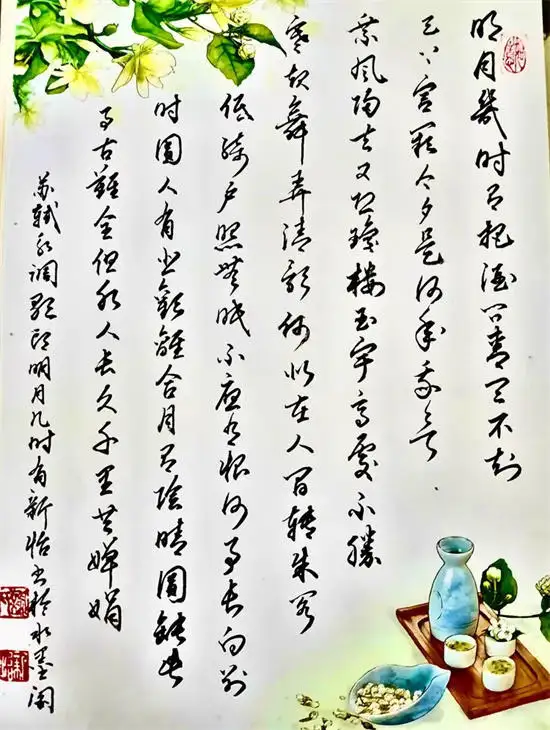 明月幾时有把酒问青天不知
天上宫阙今夕是何年我欲
乘风归去又恐瓊楼玉宇高處不勝
寒起舞弄清影何似在人间轉朱阁
低绮户照無眠不應有恨何事长向别
时圆人有悲歡離合月有陰晴圆缺此
事古難全但願人长久千里共嬋娟
苏轼水调歌头明月几时有新怡书於水墨阁